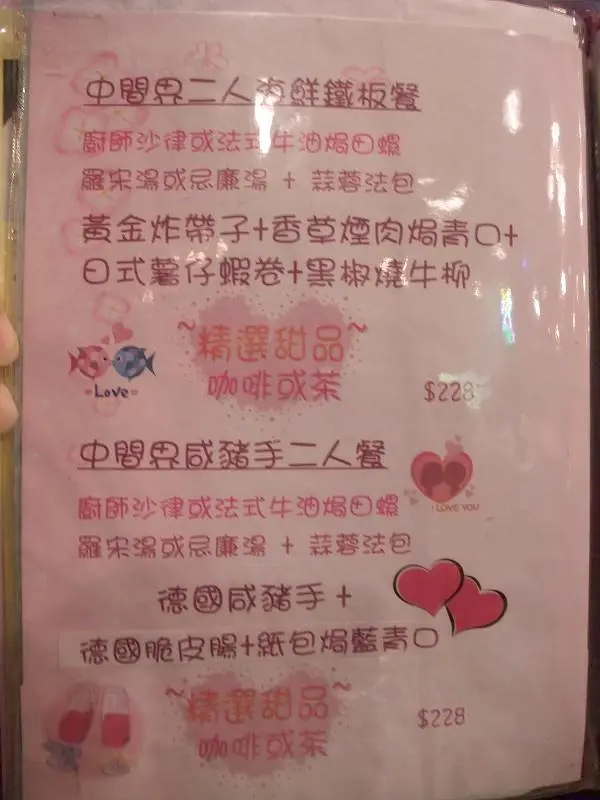 中間界二人海鮮鐵板餐
廚師沙律或法式牛油焗田螺
羅宋湯或忌廉湯 + 蒜蓉法包
黃金炸帶子+香草煙肉焗青口+
日式薯仔蝦卷+黑椒燒牛柳
~精選甜品~
咖啡或茶
Love
$228
中間界咸豬手二人餐
I LOVE YOU
廚師沙律或法式牛油焗田螺
羅宋湯或忌廉湯 + 蒜蓉法包
德國咸豬手+
德國脆皮腸+紙包焗藍青口
~精選甜品~
咖啡或茶
$228